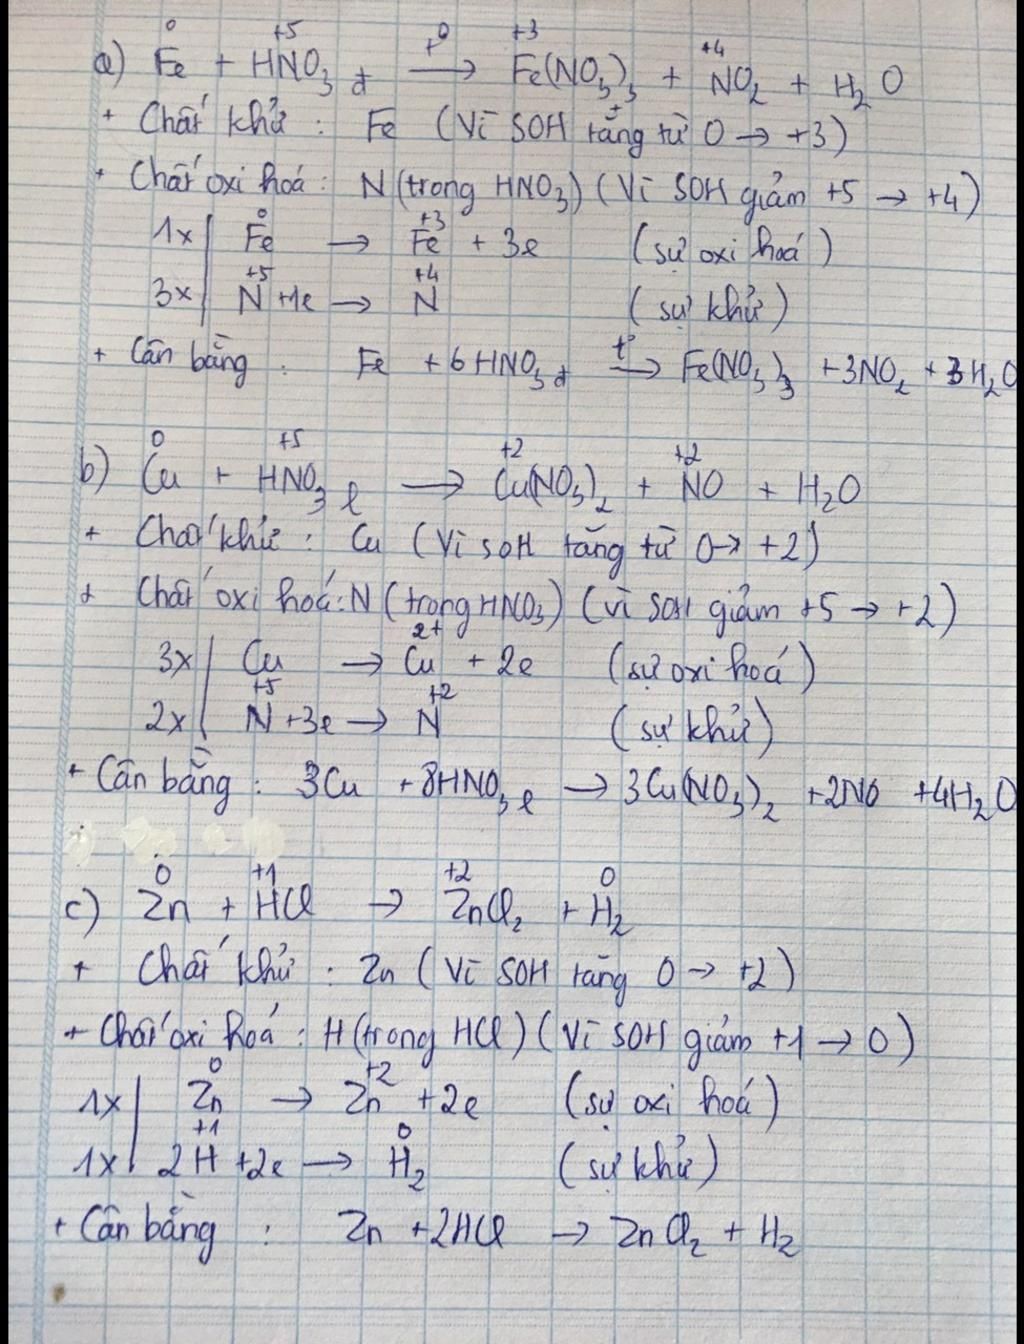 0 +5 t⁰ +3 +4
a) Fe + HNO₃ đ → Fe(NO₃)₃ + NO₂ + H₂O
+ Chất khử : Fe (Vì SOH tăng từ 0 → +3)
+ Chất oxi hoá : N (trong HNO₃) (Vì SOH giảm +5 → +4)
0 +3
1x | Fe → Fe + 3e (sự oxi hoá)
+5 +4
3x | N +1e → N (sự khử)
+ Cân bằng : Fe + 6HNO₃ đ t⁰→ Fe(NO₃)₃ +3NO₂ + 3H₂O
0 +5 +2 +2
b) Cu + HNO₃ l → Cu(NO₃)₂ + NO + H₂O
+ Chất khử : Cu (Vì SOH tăng từ 0 → +2)
+ Chất oxi hoá : N (trong HNO₃) (vì SOH giảm +5 → +2)
2+
3x | Cu → Cu + 2e (sự oxi hoá)
+5 +2
2x | N +3e → N (sự khử)
+ Cân bằng : 3Cu +8HNO₃ l → 3Cu(NO₃)₂ +2NO +4H₂O
0 +1 +2 0
c) Zn + HCl → ZnCl₂ + H₂
+ Chất khử : Zn (Vì SOH tăng 0 → +2)
+ Chất oxi hoá : H (trong HCl) (Vì SOH giảm +1 → 0)
0 +2
1x | Zn → Zn +2e (sự oxi hoá)
+1 0
1x | 2H +2e → H₂ (sự khử)
+ Cân bằng : Zn +2HCl → ZnCl₂ + H₂